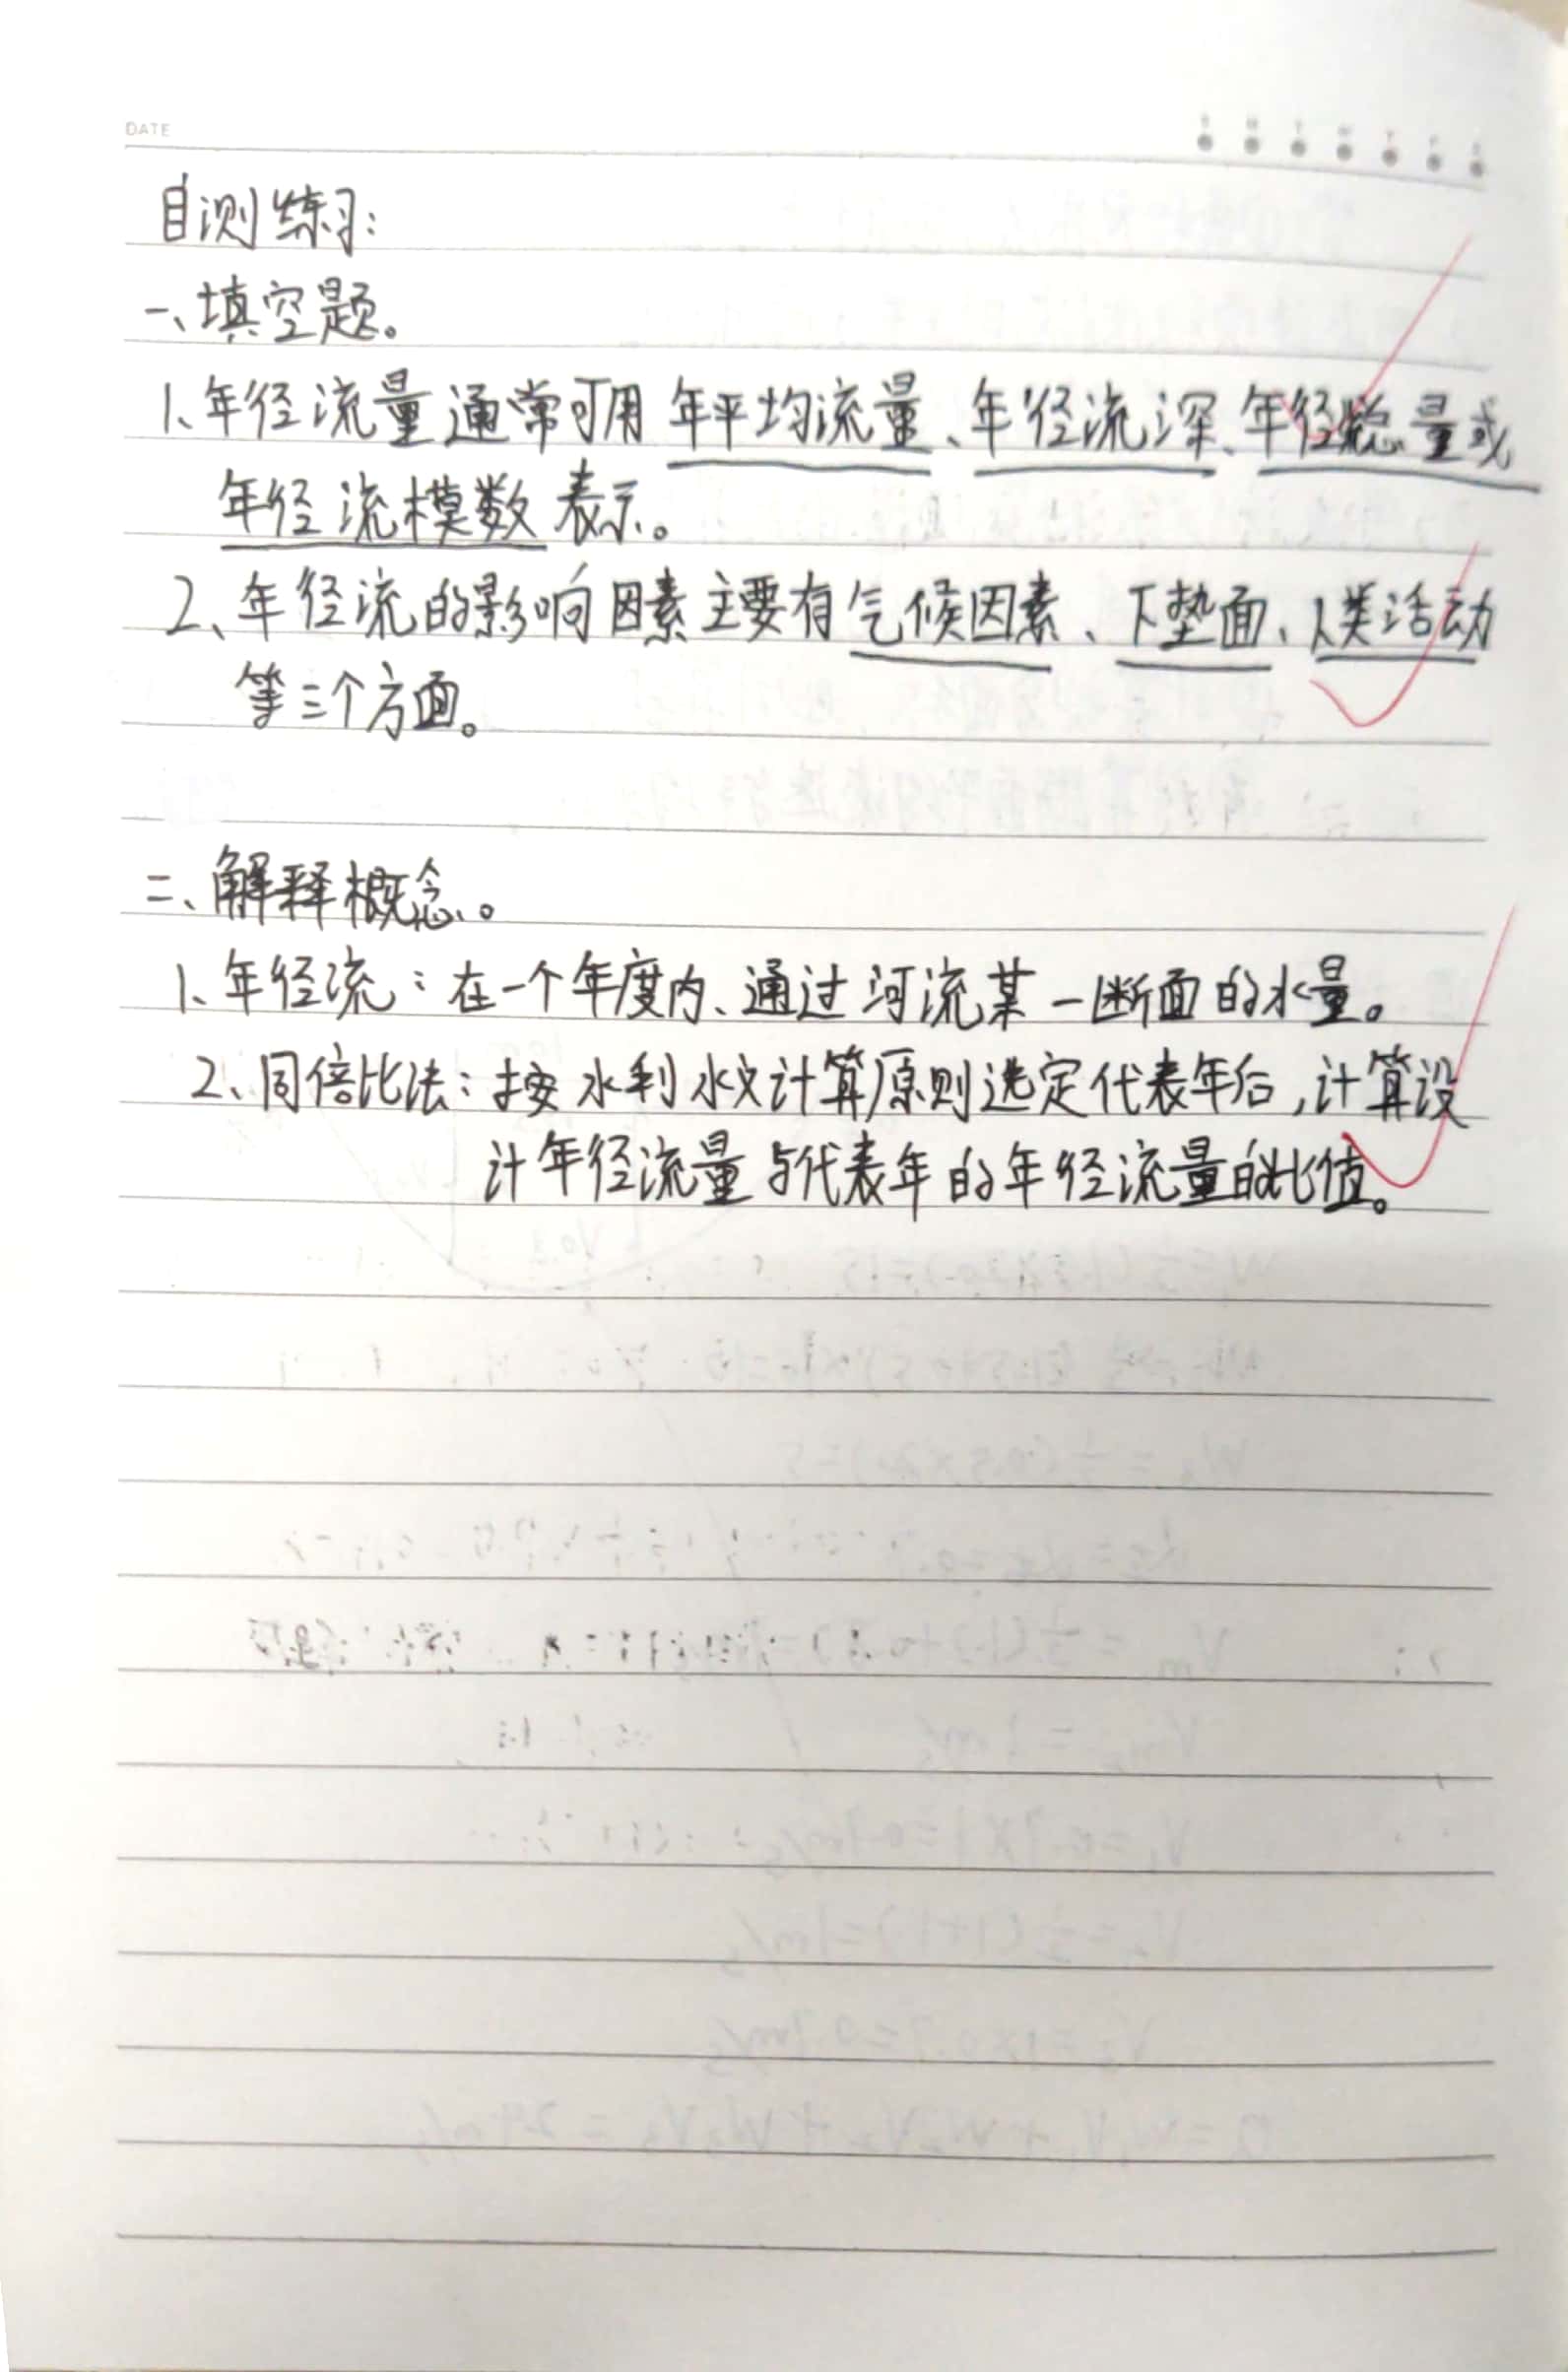 DATE
S M T W T F S
自测练习:
一、填空题。
1、年径流量通常可用 年平均流量、年径流深、年径总量或
年径流模数 表示。
2、年径流的影响因素主要有气候因素、下垫面、人类活动
等三个方面。
二、解释概念。
1、年径流:在一个年度内、通过河流某一断面的水量。
2、同倍比法:按水利水文计算原则选定代表年后,计算设
计年径流量与代表年的年径流量的比值。